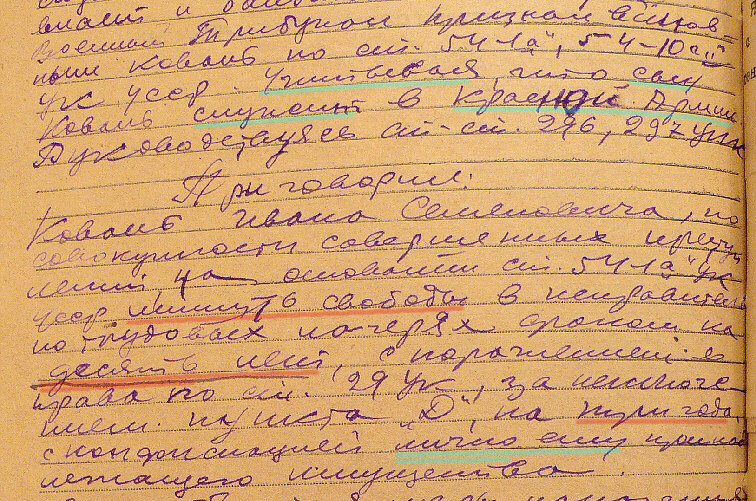 Военный Трибунал признал винов-
ным Коваль по ст. 54-1 „а", 54-10 ч. II
УК УССР. Учитывая, что сын
Коваль служит в Красной Армии
Руководствуясь ст-ст. 296, 297 УПК
Приговорил:
Коваль Ивана Семеновича, по
совокупности совершенных преступ
лений, на основании ст. 54-1 „а" УК
УССР лишить свободы в исправитель
но трудовых лагерях сроком на
десять лет, с поражением в
права по ст. 29 УК, за исключе-
нием пункта „Д", на три года,
с конфискацией лично ему принад
лежащего имущества.